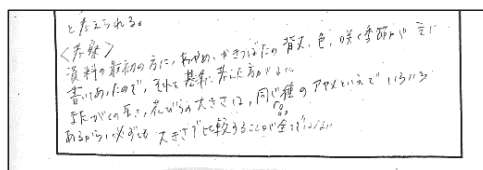 と考えられる。
<考察>
資料の最初の方に、あやめ、かきつばたの背丈、色、咲く季節が主に
書いてあったので、それを基準に考えた方がよい。
またがくの長さ、花びらの大きさは、同じ種のアヤメといえど いろいろ
あるから、必ずしも 大きさで比較することが全てではない